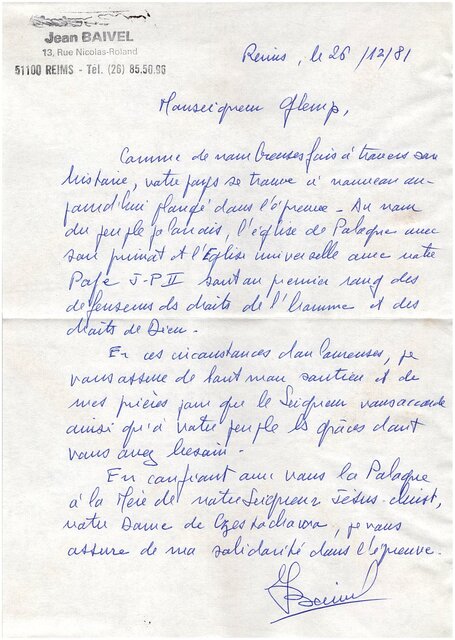 Jean BAIVEL
13, Rue Nicolas-Roland
51100 REIMS - Tél. (26) 85.50.96
Reims, le 26/12/81
Monseigneur Glemp,
Comme de nombreuses fois à travers son
histoire, votre pays se trouve à nouveau au-
jourd'hui plongé dans l'épreuve - Au nom
du peuple polonais, l'église de Pologne avec
son primat et l'Eglise universelle avec notre
Pape J-P II sont au premier rang des
défenseurs des droits de l'homme et des
droits de Dieu.
En ces circonstances douloureuses, je
vous assure de tout mon soutien et de
mes prières pour que le Seigneur vous accorde
ainsi qu'à votre peuple les grâces dont
vous avez besoin.
En confiant avec vous la Pologne
à la Mère de notre Seigneur Jésus-Christ,
notre Dame de Czestochowa, je vous
assure de ma solidarité dans l'épreuve.